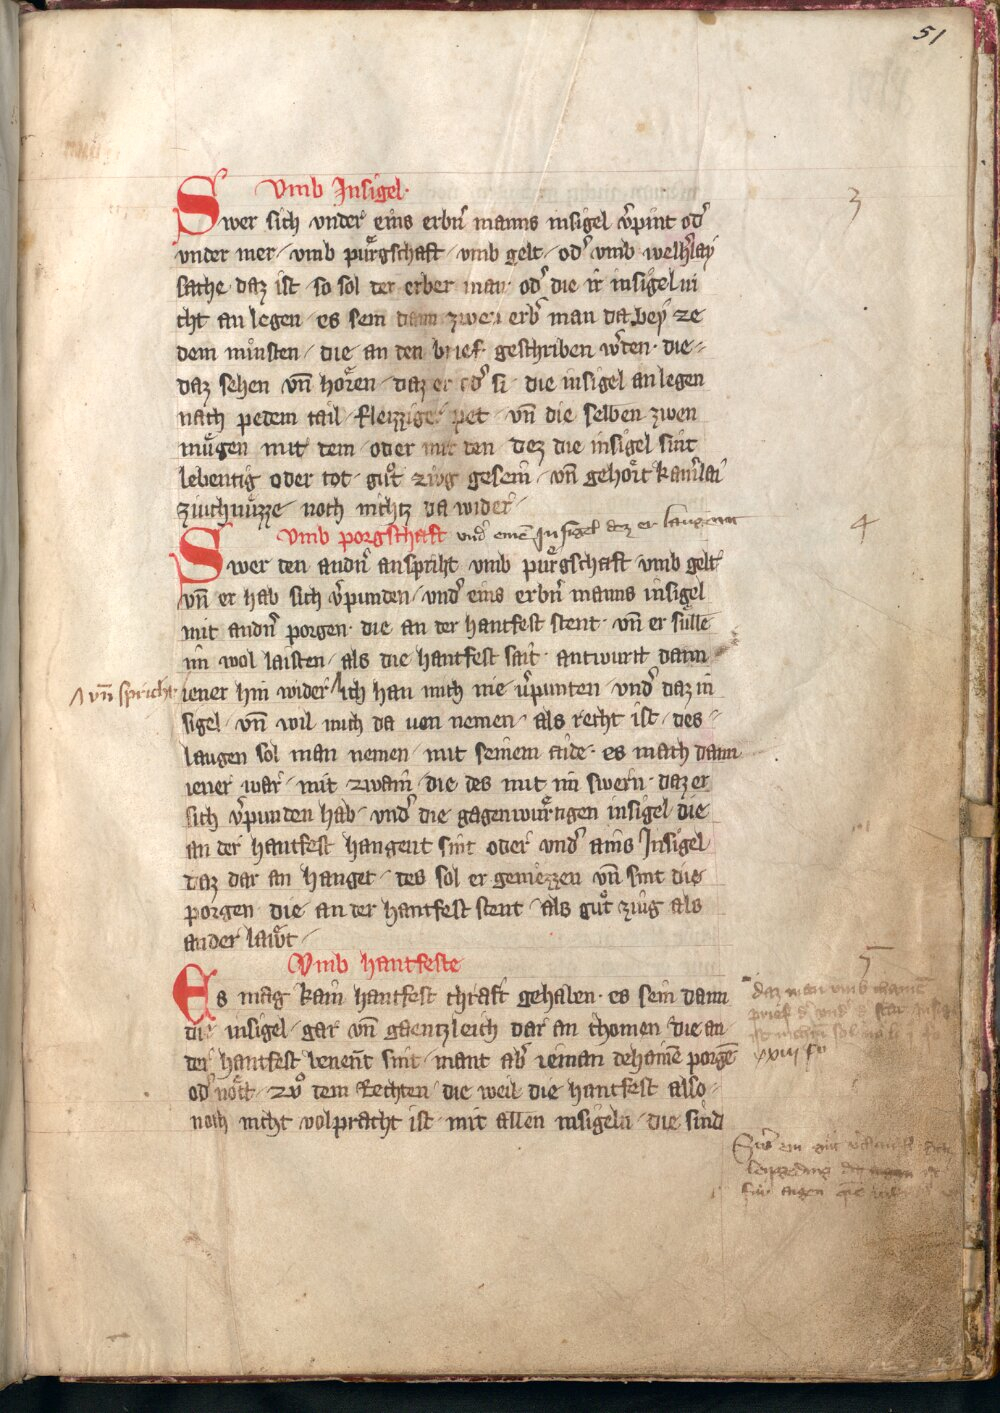 51
Vmb Insigel·
3
Swer sich vnder eins erbn̄ manns insigel v̄pint od᾽
vnder mer / vmb pu̇rgschaft / vmb gelt / od᾽ vmb welh᾽lay
sache daz ist / so sol der erber man· od᾽ die ir insigel ni
cht an legen / es sein dann zwen erb᾽ man da bey ze
dem minsten / die an den brief geschriben w᾽den· die⸗
daz sehen vn̄ hoͤren / daz er od᾽ si / die insigel an legen
nach pedem tail / fleizziger pet / vn̄ die selben zwen
muͤgen mit dem / oder mit den / dez die insigel sint
lebentig oder tot / guͦt ziug gesein / vn̄ gehoͤrt kainerlai
zuich nuͤzze / noch nichtz da wider /
Vmb porgschaft vnd᾽ eine᷑ Insigel dez er laugent
4
Swer den andn̄ anspricht vmb puͤrgschaft vmb gelt
vn̄ er hab sich v᾽punden / vnd᾽ eins erbn̄ manns insigel
mit andn̄ porgen· die an der hantfest stent· vn̄ er suͤlle
im wol laisten / als die hantfest sait· antwurtt dann
∧ vn̄ spricht
iener hin wider / ∧ ich han mich nie v᾽punten / vnd᾽ daz in
sigel / vn̄ wil mich da uon nemen / als recht ist / des⸗
laugen sol man nemen / mit seinem aide· es mach dann
iener war / mit zwain / die des mit im swern· daz er
sich v᾽punden hab / vnd᾽ die gagenwuͤrtigen insigel die
an der hantfest hangent sint oder vnd᾽ ains Insigel
daz dar an hanget / des sol er geniezzen vn̄ sint die
porgen die an der hantfest stent / als guͦt ziug als
ander laeͮt /
Vmb hantfeste
5
Es mag kain hantfest chraft gehaben· es sein dann
die insigel / gar vn̄ gaentzleich dar an chomen / die an
der hantfest benent sint / mant ab᾽ ieman dehaine᷑ porge᷑
od᾽ noͤtt / zuͦ dem Rechten / die weil die hantfest also⸗
noch nicht volpracht ist / mit allen insigeln / die sind
daz man vmb
prief
xxiii fo
Swer ein gut
leipgeding
fuͤr aigen